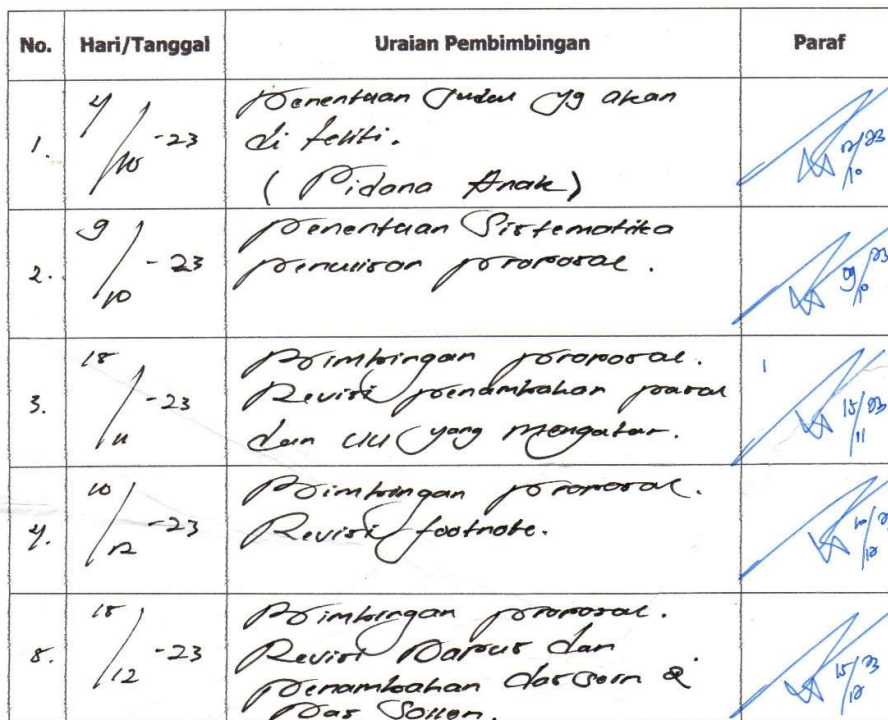 No. Hari/Tanggal Uraian Pembimbingan Paraf
1. 4/10-23 Penentuan Judul yg akan
di teliti.
(Pidana Anak)
2. 9/10-23 Penentuan Sistematika
penulisan proposal. 09/10 23
3. 15/11-23 Bimbingan proposal.
Revisi penambahan pasal
dan UU yang mengatur. 15/11 23
4. 10/12-23 Bimbingan proposal.
Revisi footnote. 10/12 23
5. 15/12-23 Bimbingan proposal.
Revisi Dapus dan
Penambahan das sein &
Das Sollen. 15/12 23